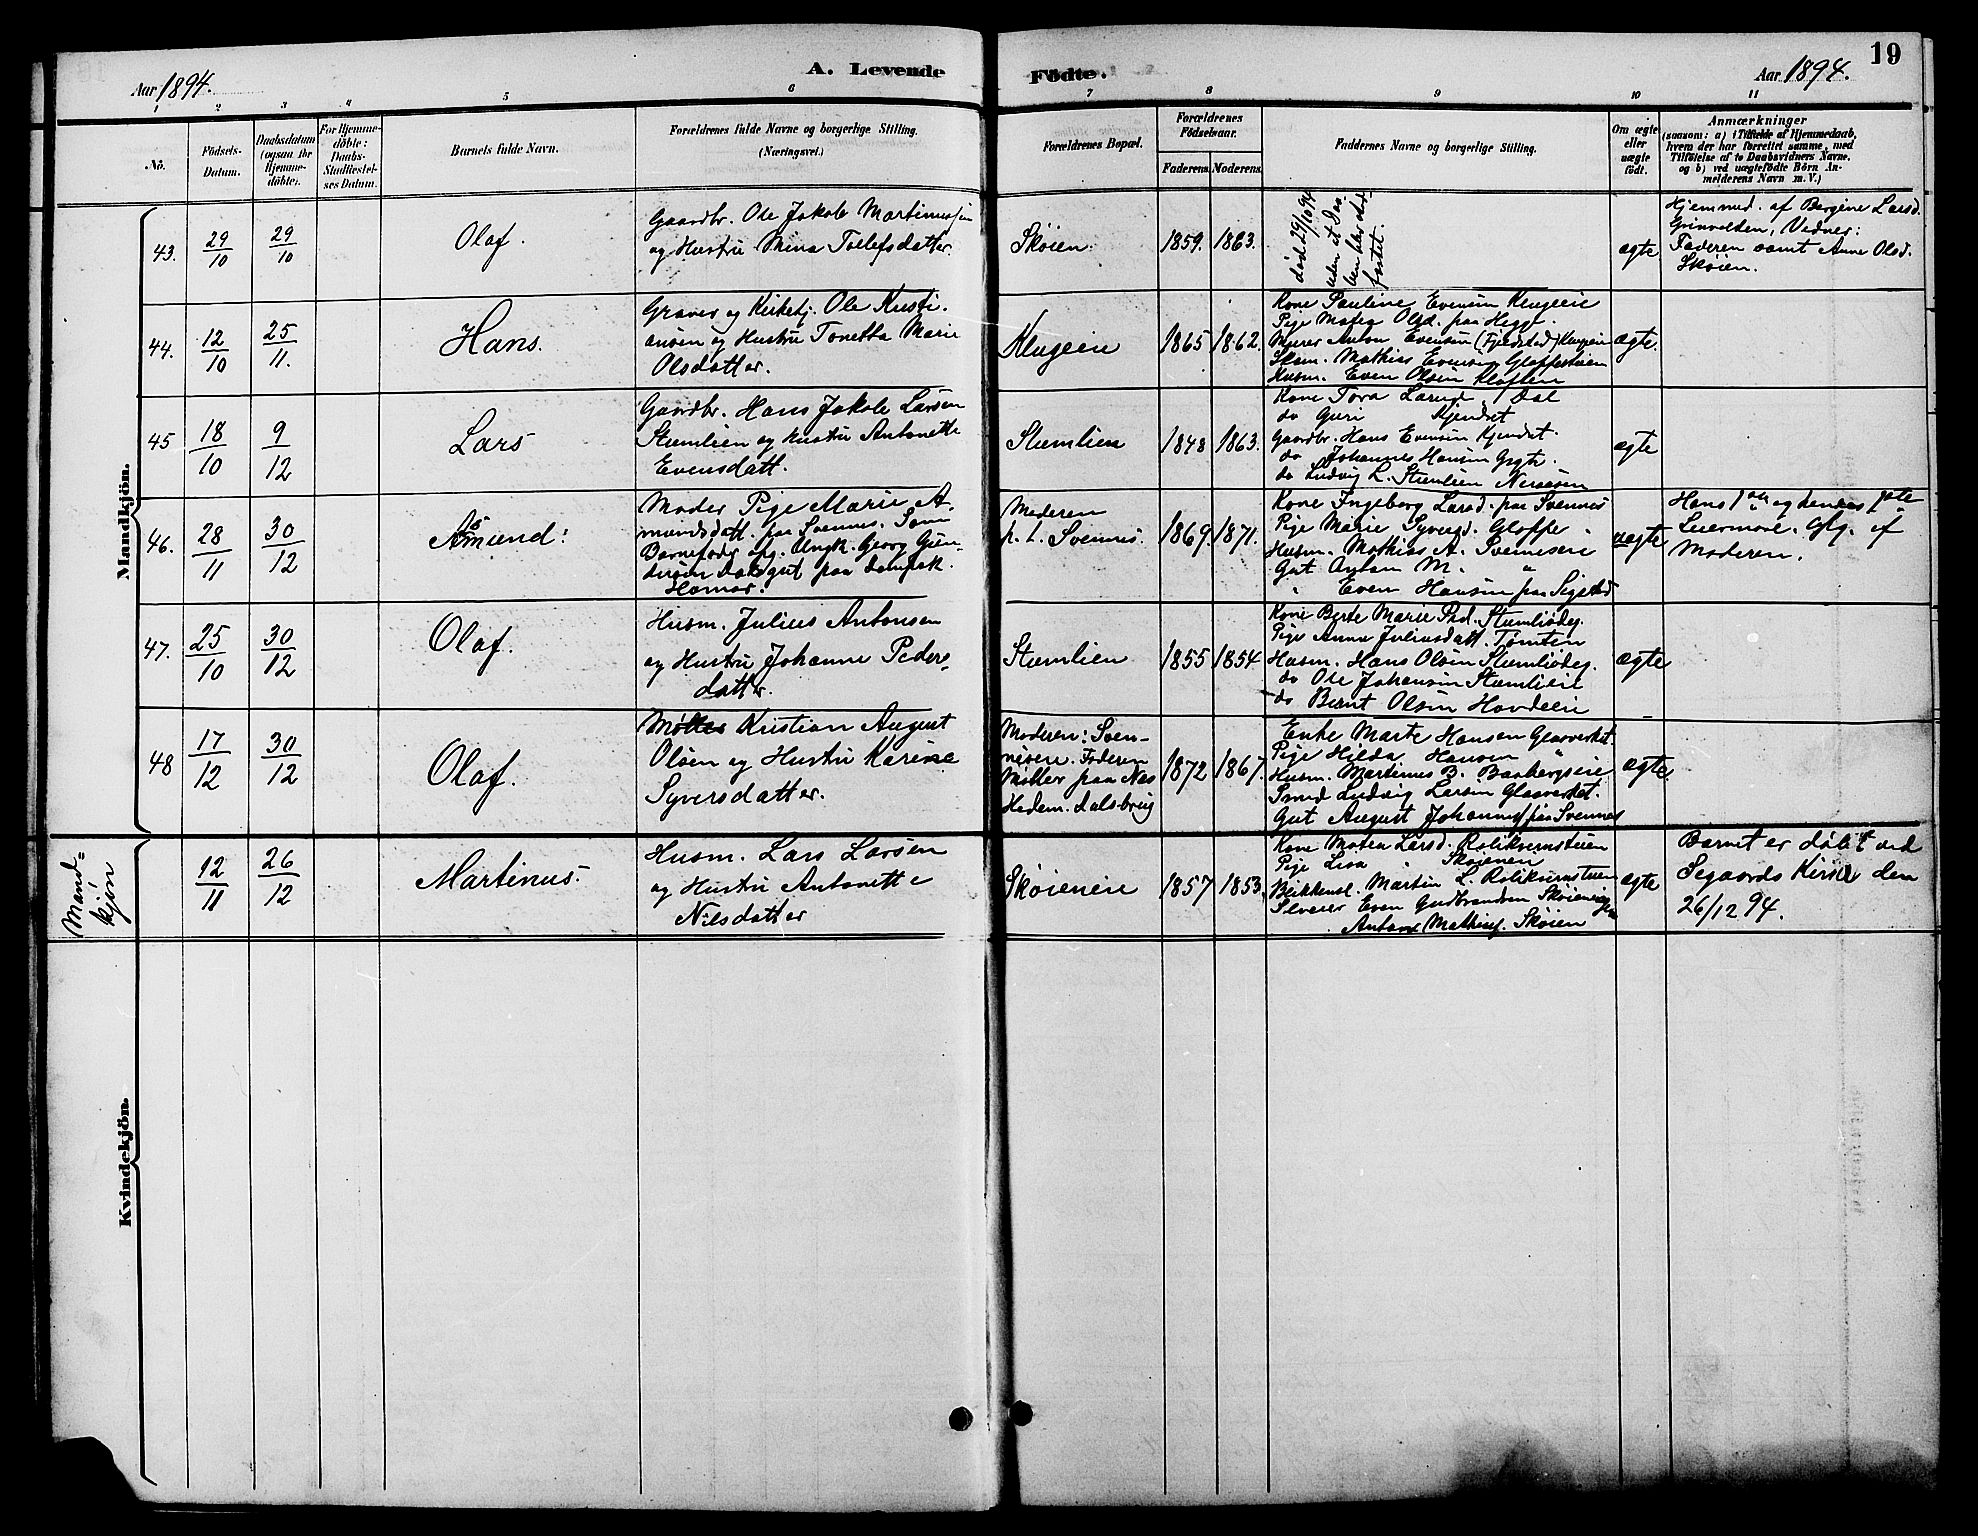 19
Aar 1894.
A. Levende
Födte.
Aar 1894.
1 2 3 4 5 6 7 8 9 10 11
No.
Födsels-
Datum.
Daabsdatum
(ogsaa for
Hjemme-
döbte).
For Hjemme-
döbte:
Daabs-
Stadfæstel-
ses Datum.
Barnets fulde Navn.
Forældrenes fulde Navne og borgerlige Stilling.
(Næringsvei.)
Forældrenes Bopæl.
Forældrenes
Födselsaar.
Faderens. Moderens.
Faddernes Navne og borgerlige Stilling.
Om ægte
eller
uægte
födt.
Anmærkninger
(saasom: a) i Tilfælde af Hjemmedaab,
hvem der har forrettet samme, med
Tilföielse af to Daabsvidners Navne,
og b) ved uægtefödte Börn An-
melderens Navn m. V.)
Mandkjön.
43.
29/10
29/10
Olaf.
Gaardbr. Ole Jakob Martinussen
og Hustru Mina Tollefsdatter
Skøien.
1859. 1863.
død 29/10 94
uden at Daa-
ben blev stad-
fæstet.
ægte
Hjemmed. af Bergine Larsd.
Grinvolten, Vidner:
Faderen samt Anne Olsd.
Skøien.
44.
12/10
25/11.
Hans.
Graver og Kirketj. Ole Kristi-
ansen og Hustru Tonetta Marie
Olsdatter.
Klugeie
1865 1862.
Kone Pauline Evensen Klugeie
Pige Matea Olsd. paa Hegge
Murer Anton Evensen (Fjeldstad) Klugeie
Skom. Mathias Evensen
Husm. Even Olsen Kloften
ægte.
45
18/10
9/12
Lars
Gaardbr. Hans Jakob Larsen
Stumlien og Hustru Antonette
Evensdatt.
Stumlien
1848 1863.
Kone Tora Larud Dal
do Guri Kjendset
Gaardbr. Hans Evensen Kjendset.
do Johannes Hansen
do Ludvig L. Stumlien
ægte
46.
28/11
30/12
Asmund:
Moder Pige Marie A-
mundsdatt. paa Svennes. Som
Barnefader opg. Ungk. Georg Gun-
dersen Dæksgut paa dampsk.
Hamar.
Moderen
p. t. Svennes.
1869 1871.
Kone Ingeborg Larsd. paa Svennes
Pige Marie Syversd. Gloppe
Husm. Mathias A. Svenneseie
Gut Anton M. "
" Even Hansen paa Sigstad
uægte
Hans 1ste og hendes 1ste
Leiermaal. Opg. af
Moderen.
47.
25/10
30/12
Olaf.
Husm. Julius Antonsen
og Hustru Johanne Peders-
datter.
Stumlien
1855 1854
Kone Berte Marie Ped. Stumliødeg.
Pige Anna Juliusdatt. Tomten
Husm. Hans Olsen Stumliødeg.
do Ole Johansen Stumlieie
do Bernt Olsen Hovdeeie
ægte
48
17/12
30/12
Olaf.
Møller Kristian August
Olsen og Hustru Karine
Syversdatter.
Moderen: Sven-
neseie. Faderen
Møller paa Næs
Hedem. Dalsbrug
1872 1867.
Enke Marte Hansen Glasverket.
Pige Hilda Hansen "
Husm. Martinus B. Baabergseie
Smed Ludvig Larsen Glasverket.
Gut August Johannes. paa Svennes
ægte
Mand-
kjøn
12/11
26/12
Martinus.
Husm. Lars Larsen
og Hustru Antonette
Nilsdatter
Skøieneie
1857 1853.
Kone Matea Larsd. Rolikvernstuen
Pige Lisa " Skøienen
Blikkensl. Martin L. Rolikvernstuen
Even Gudbrandsen Skøieneie
Anton Mathias. Skøien
ægte
Barnet er døbt ved
Segaards Kirke den
26/12 94.
Kvindekjön.